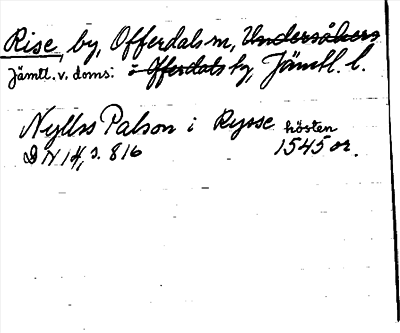 Rise, by, Offerdals sn, Undersåkers
Jämtl. v. doms: o Offerdals ty, Jämtl. l.
Nyllss Palson i Rysse hösten
DN 14, s. 816 1545 or.